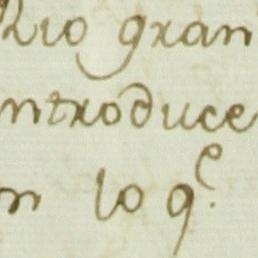 Rio gran
ntroduce
n lo q.e